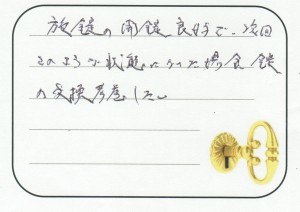 放錠の開錠良好で、次回
このような状態になった場合錠
の交換考慮したし